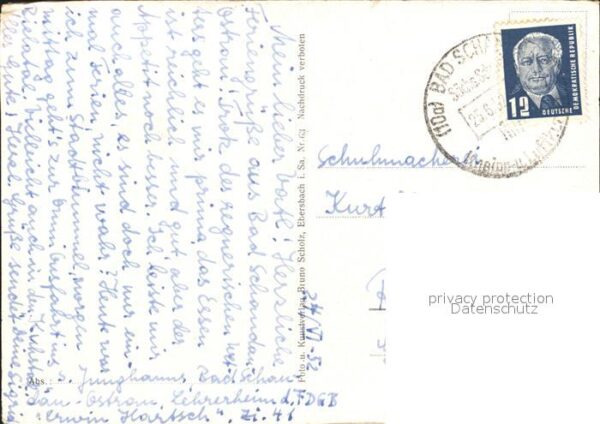 Mein lieber Vati! Herzliche
Feriengrüße aus Bad Schandau-
Ostrau! Trotz des regnerischen Wet-
ters geht es mir prima, das Essen
ist reichlich und gut aber der
Appetit noch besser. Ich leiste mir
auch alles, es sind doch nur ein-
mal Ferien, nicht wahr? Heut war
ich zum Stadtbummel, morgen
mittag geht's zur Omnibusfahrt ins
Bielatal. Vielleicht auch in den Kuhstall
Sigrid
Abs.: S. Junghanns, Bad Schan-
dau-Ostrau, Lehrerheim d. FDGB
"Erwin Hartsch", Zi. 41
24. VI. 52
Foto u. Kunstverlag Bruno Scholz, Ebersbach i. Sa. Nr. 63 Nachdruck verboten
(10a) BAD SCHAN
12
DEUTSCHE DEMOKRATISCHE REPUBLIK
Schuhmacherm
Kurt
privacy protection
Datenschutz